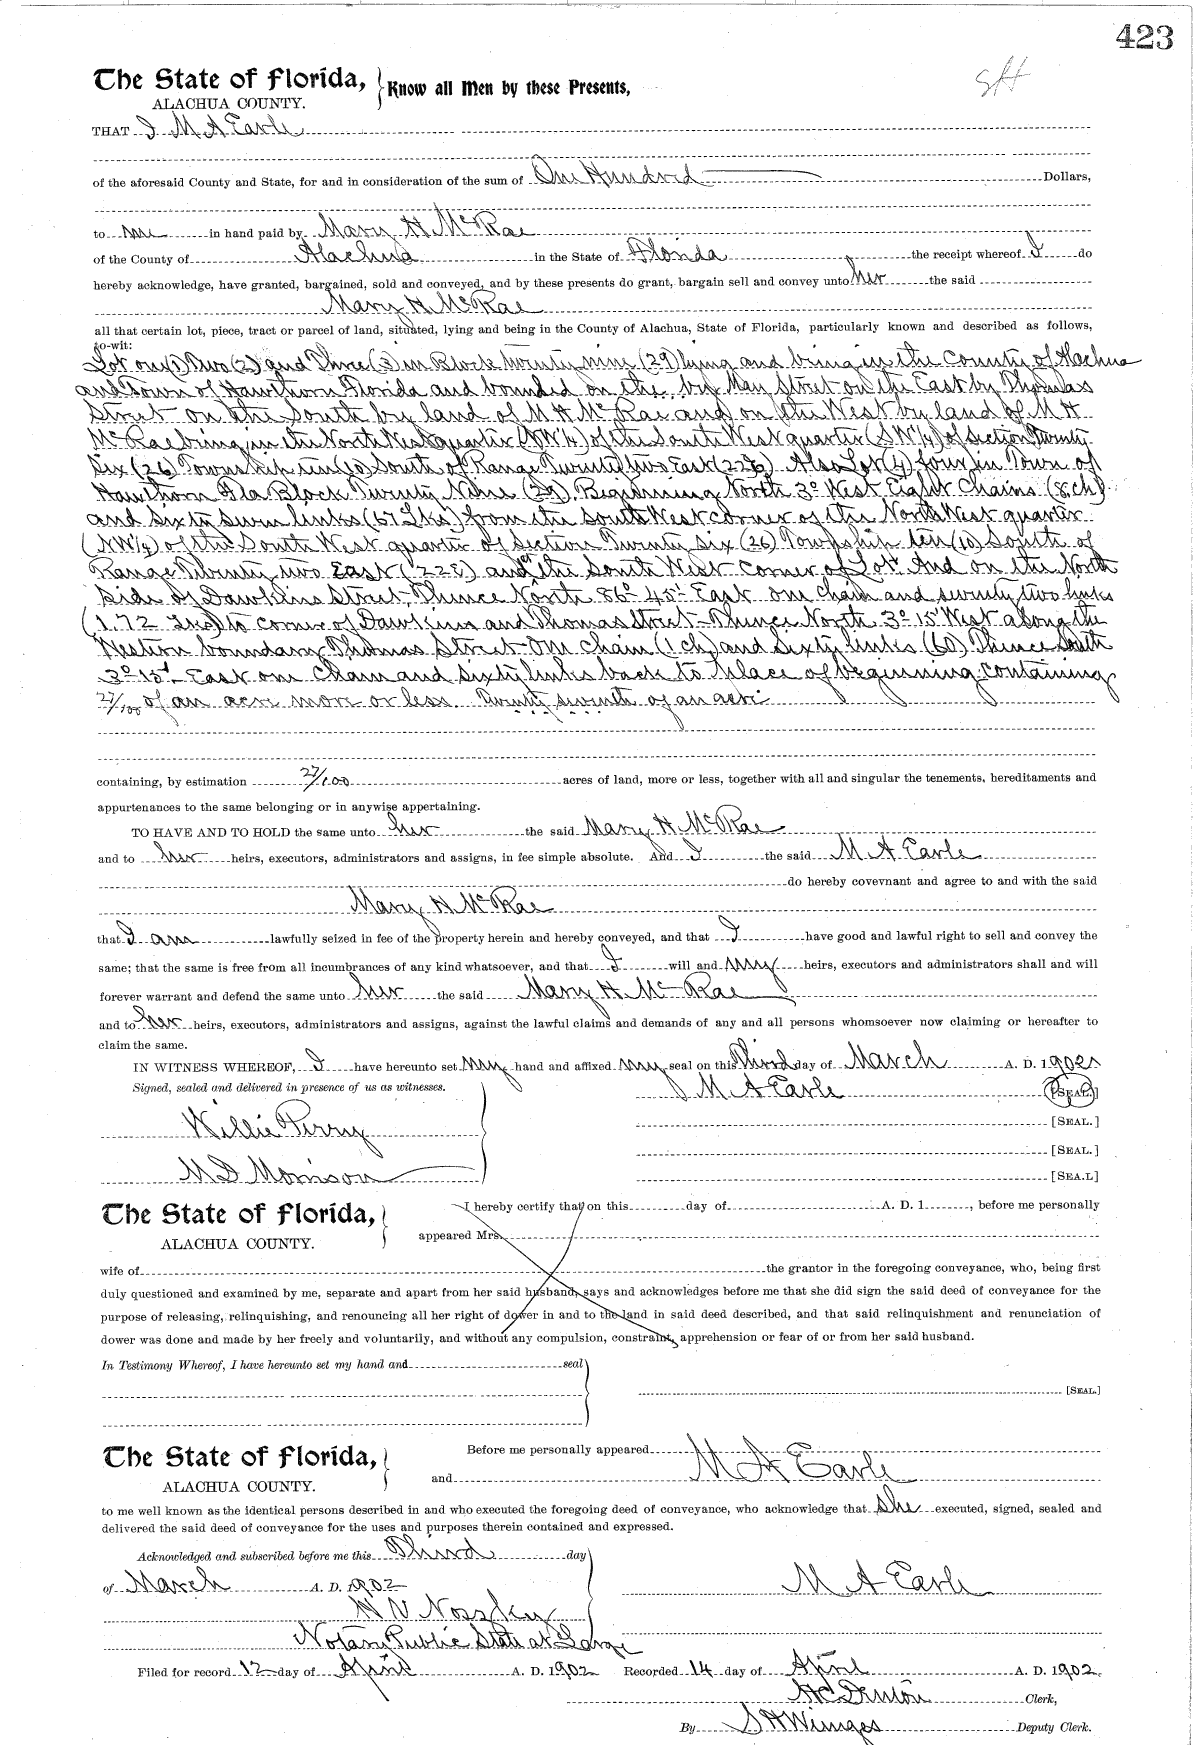 423
SH
The State of Florida, Know all Men by these Presents,
ALACHUA COUNTY.
THAT I M A Earle
of the aforesaid County and State, for and in consideration of the sum of One Hundred Dollars,
to me in hand paid by Mary H McRae
of the County of Alachua in the State of Florida the receipt whereof I do
hereby acknowledge, have granted, bargained, sold and conveyed, and by these presents do grant, bargain sell and convey unto her the said
Mary H McRae
all that certain lot, piece, tract or parcel of land, situated, lying and being in the County of Alachua, State of Florida, particularly known and described as follows,
to-wit:
Lot one (1) Two (2) and Three (3) in Block Twenty nine (29) lying and being in the County of Alachua
and Town of Hawthorn Florida and bounded on the by May Street on the East by Thomas
Street on the South by land of M H McRae and on the West by land of M H
McRae being in the North West quarter (NW 1/4) of the South West quarter (SW 1/4) of Section Twenty
Six (26) Township ten (10) South of Range Twenty two East (22E) Also Lot (4) four in Town of
Hawthorn Fla Block Twenty Nine (29) Beginning North 3° West Eight Chains (8 ch)
and Sixty seven links (67 Lks) from the South West corner of the North West quarter
(NW 1/4) of the South West quarter of Section Twenty Six (26) Township ten (10) South of
Range Twenty two East (22E) and the South West corner of Lot And on the North
side of Dawkins Street, Thence North 86° 45- East one chain and seventy two links
(1.72 Lks) to corner of Dawkins and Thomas Street- Thence North 3° 15' West along the
Western boundary Thomas Street One Chain (1 ch) and Sixty links (60) Thence South
3° 15' East one Chain and sixty links back to place of beginning containing
27/100 of an acre more or less. Twenty seventh of an acre
containing, by estimation 27/100 acres of land, more or less, together with all and singular the tenements, hereditaments and
appurtenances to the same belonging or in anywise appertaining.
TO HAVE AND TO HOLD the same unto her the said Mary H McRae
and to her heirs, executors, administrators and assigns, in fee simple absolute. And I the said M A Earle
do hereby covevnant and agree to and with the said
Mary H McRae
that I am lawfully seized in fee of the property herein and hereby conveyed, and that I have good and lawful right to sell and convey the
same; that the same is free from all incumbrances of any kind whatsoever, and that I will and my heirs, executors and administrators shall and will
forever warrant and defend the same unto her the said Mary H McRae
and to her heirs, executors, administrators and assigns, against the lawful claims and demands of any and all persons whomsoever now claiming or hereafter to
claim the same.
IN WITNESS WHEREOF, I have hereunto set my hand and affixed my seal on this Third day of March A. D. 1902
Signed, sealed and delivered in presence of us as witnesses. M A Earle [SEAL.]
Willie Perry [SEAL.]
[SEAL.]
M D Morrison [SEA.L]
The State of Florida, I hereby certify that on this day of A. D. 1 , before me personally
ALACHUA COUNTY. appeared Mrs.
wife of the grantor in the foregoing conveyance, who, being first
duly questioned and examined by me, separate and apart from her said husband, says and acknowledges before me that she did sign the said deed of conveyance for the
purpose of releasing, relinquishing, and renouncing all her right of dower in and to the land in said deed described, and that said relinquishment and renunciation of
dower was done and made by her freely and voluntarily, and without any compulsion, constraint, apprehension or fear of or from her said husband.
In Testimony Whereof, I have hereunto set my hand and seal
[SEAL.]
The State of Florida, Before me personally appeared M A Earle
ALACHUA COUNTY. and
to me well known as the identical persons described in and who executed the foregoing deed of conveyance, who acknowledge that she executed, signed, sealed and
delivered the said deed of conveyance for the uses and purposes therein contained and expressed.
Acknowledged and subscribed before me this Third day
of March A. D. 1902 M A Earle
Notary Public State at Large
Filed for record 12 day of April A. D. 1902 Recorded 14 day of April A. D. 1902.
H C Denton Clerk,
By S H Wienges Deputy Clerk.